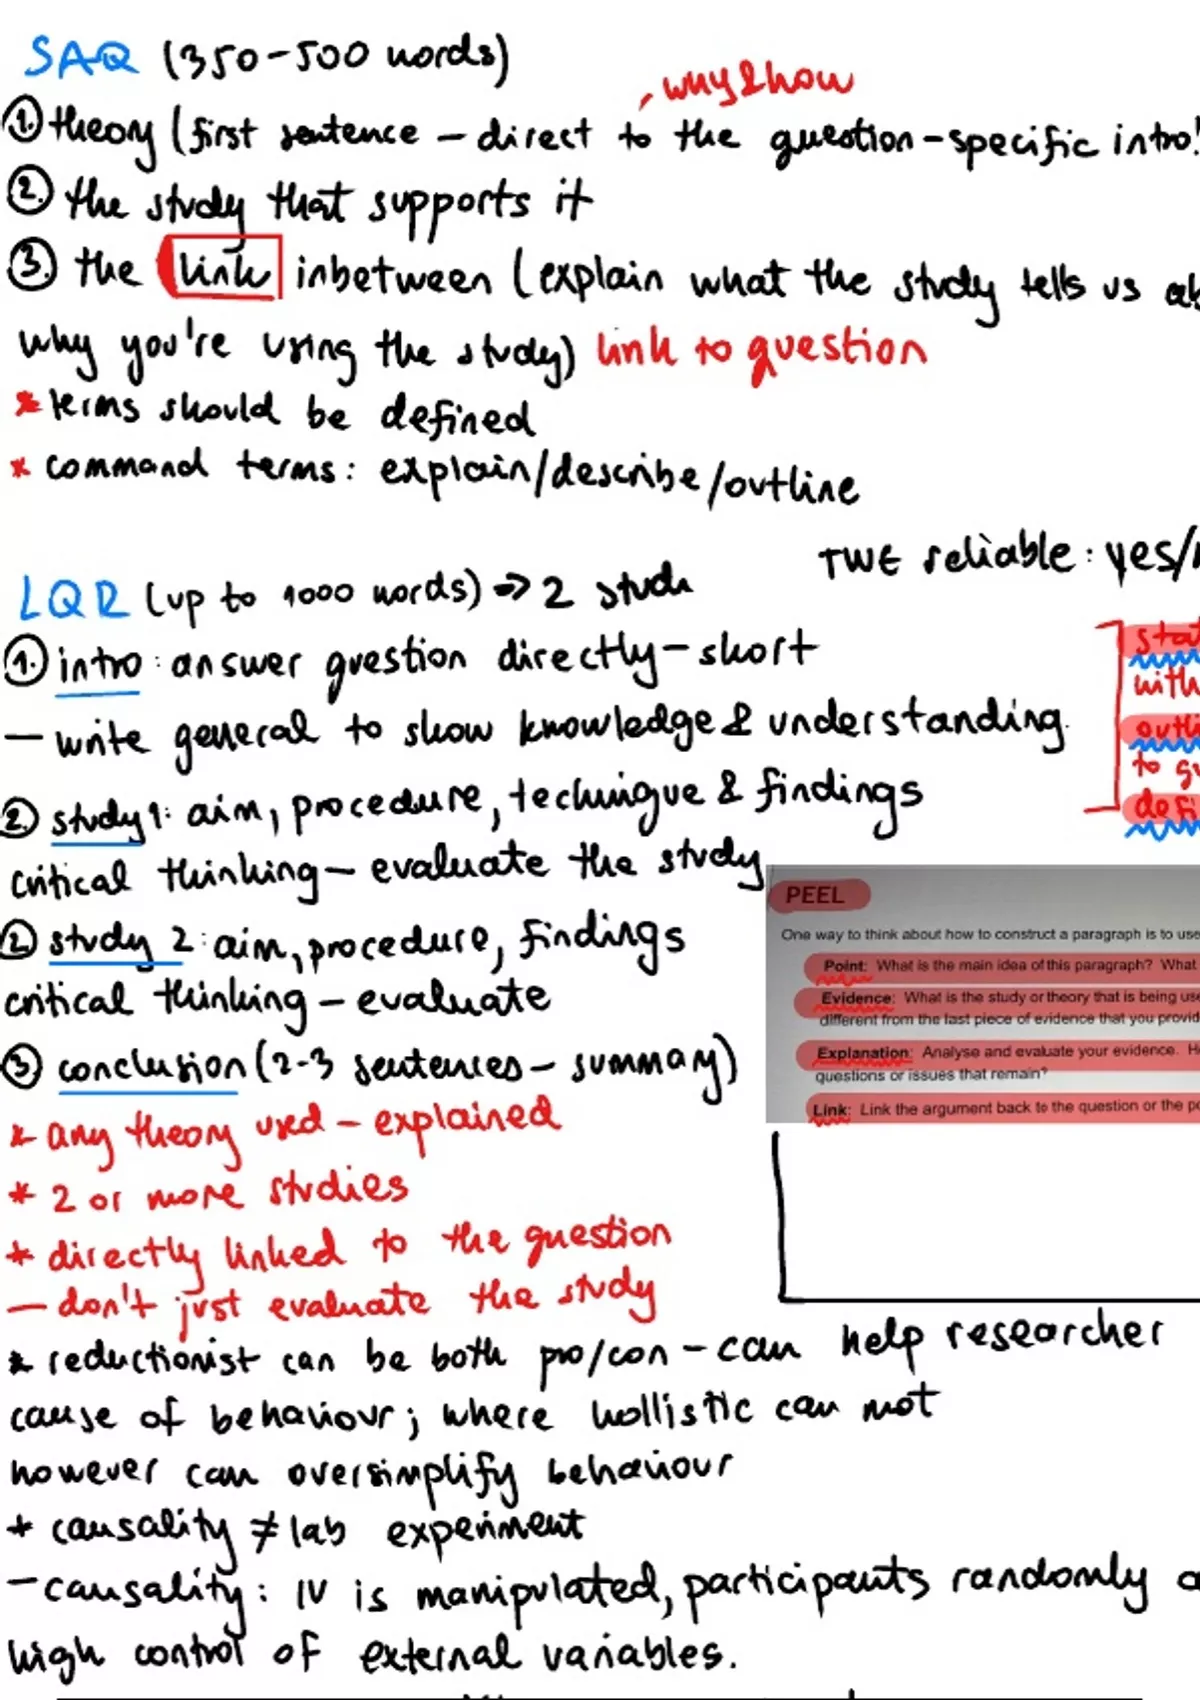 SAQ (350-500 words)
, why & how
1. theory (first sentence - direct to the question-specific intro!
2. the study that supports it
3. the link inbetween (explain what the study tells us ab
why you're using the study) link to question
* terms should be defined
* command terms: explain/describe/outline
TWE reliable: yes/
LQR (up to 1000 words) => 2 studi
1. intro: answer question directly - short
- write general to show knowledge & understanding.
2. study 1: aim, procedure, technique & findings
critical thinking - evaluate the study
2. study 2: aim, procedure, findings
critical thinking - evaluate
3. conclusion (2-3 sentences - summary)
* any theory used - explained
* 2 or more studies
* directly linked to the question
- don't just evaluate the study
* reductionist can be both pro/con - can help researcher
cause of behaviour; where hollistic can not
however can oversimplify behaviour
* causality ≠ lab experiment
- causality: IV is manipulated, participants randomly a
high control of external variables.
stat
with
outl
to qu
defi
PEEL
One way to think about how to construct a paragraph is to use
Point: What is the main idea of this paragraph? What
Evidence: What is the study or theory that is being use
different from the last piece of evidence that you provid
Explanation: Analyse and evaluate your evidence. H
questions or issues that remain?
Link: Link the argument back to the question or the po